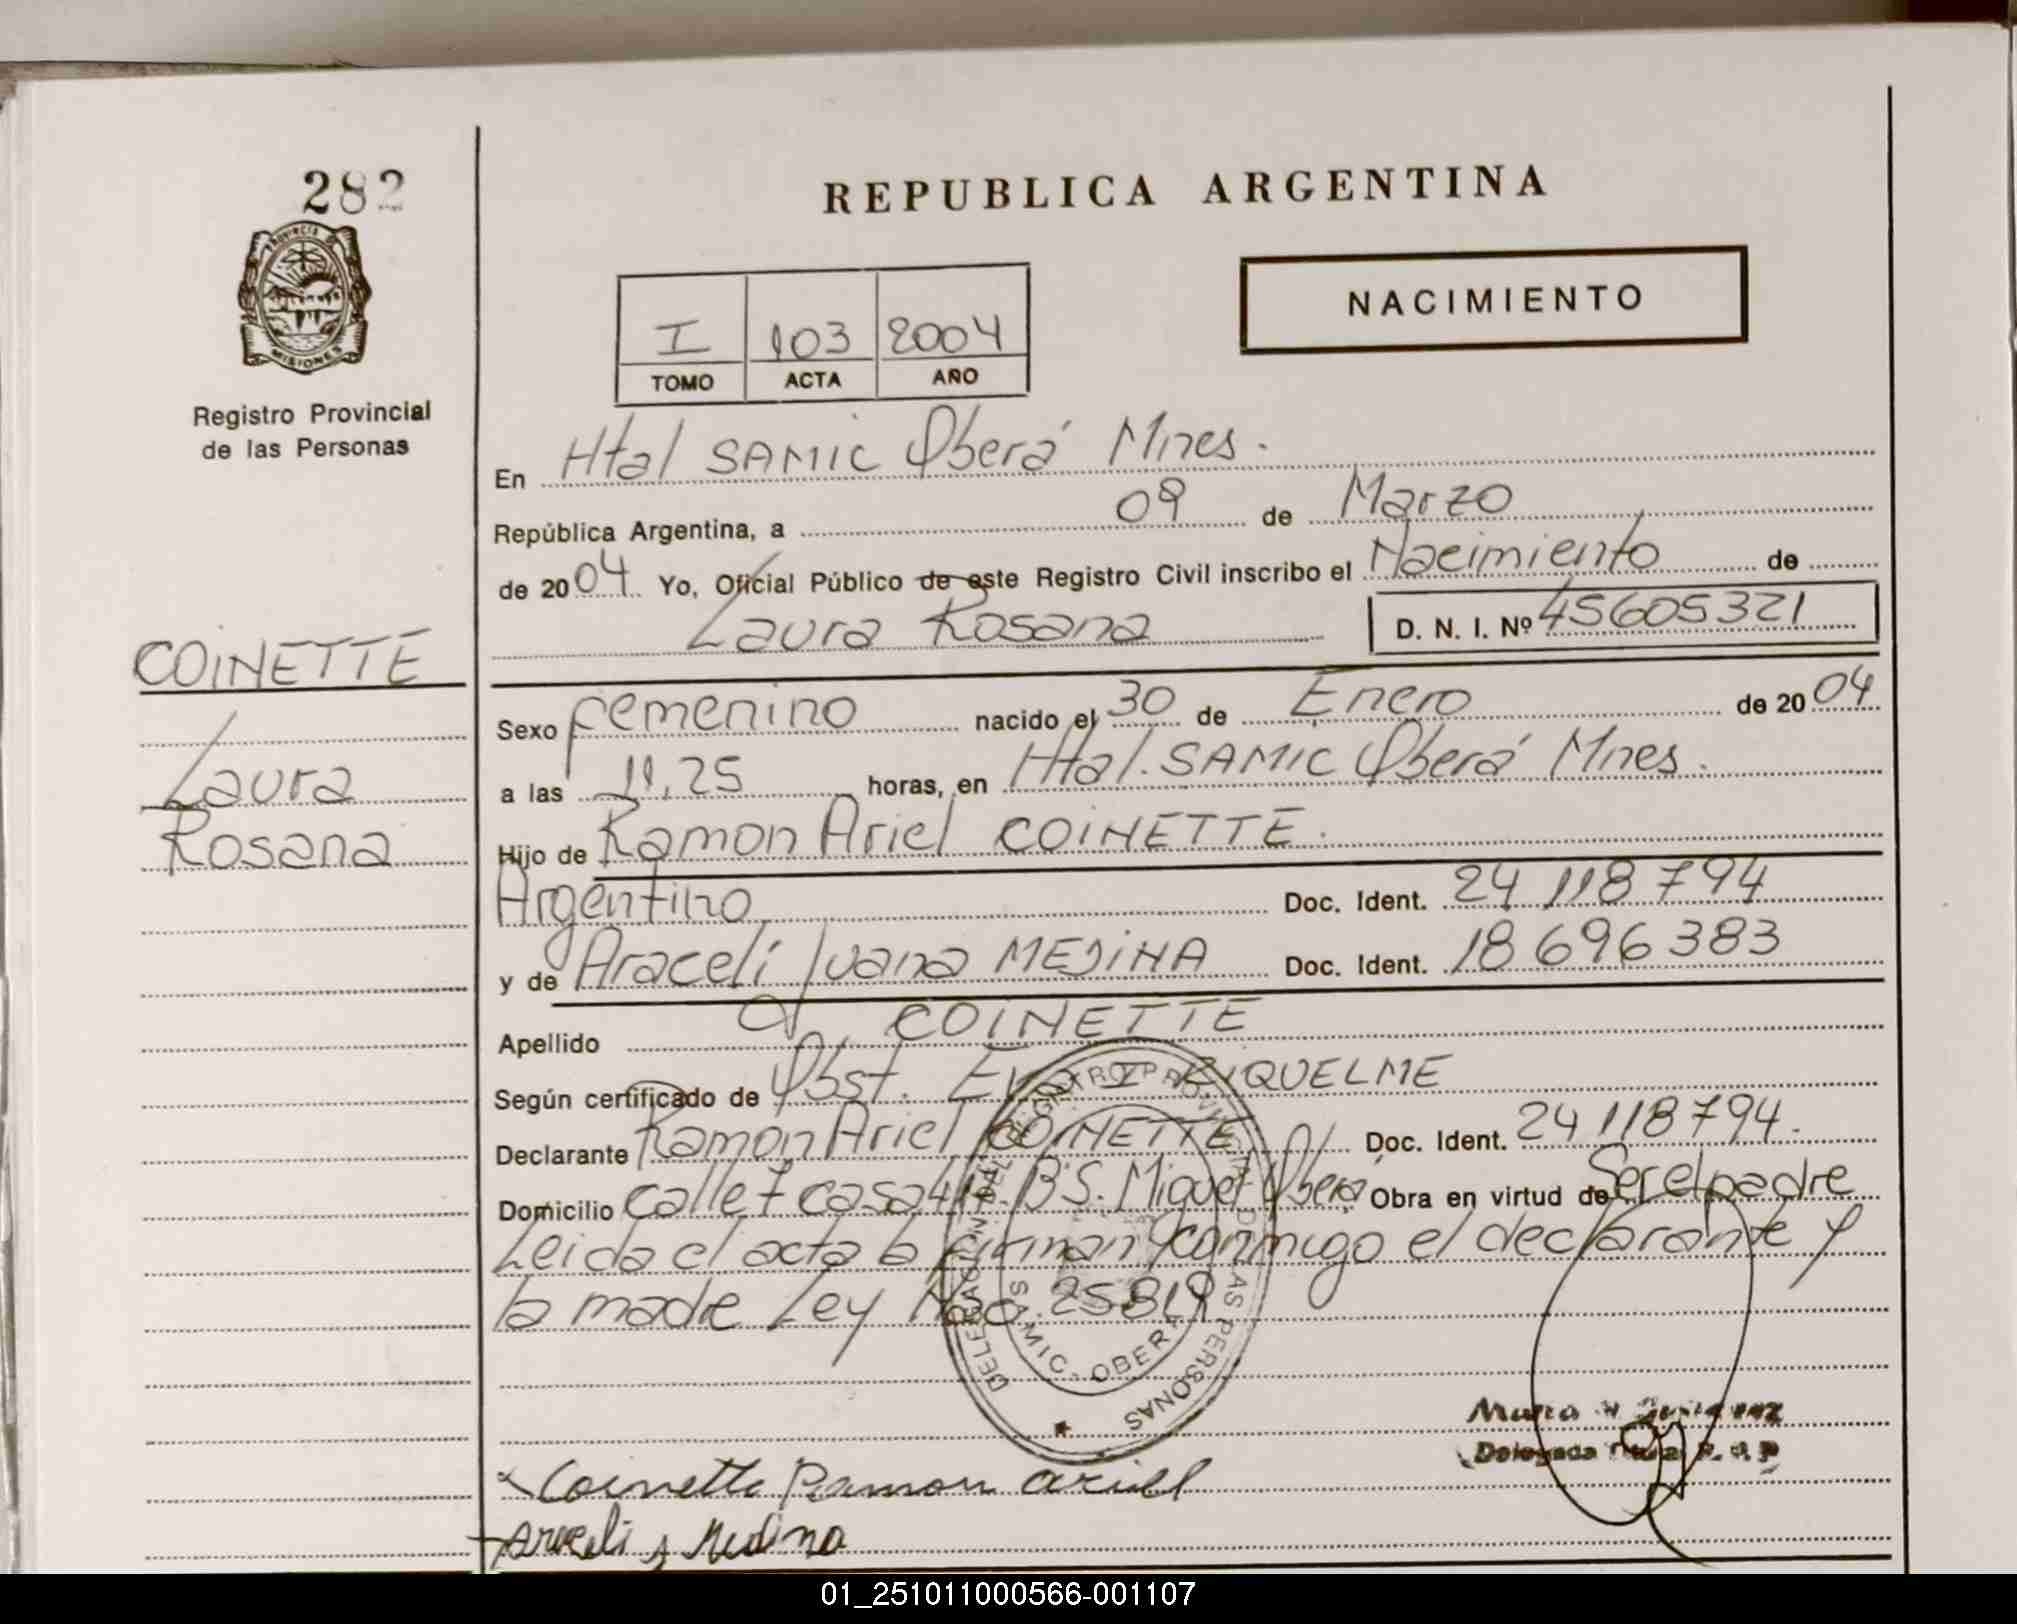 282
REPUBLICA ARGENTINA
PROVINCIA DE
MISIONES
NACIMIENTO
I 103 2004
TOMO ACTA AÑO
Registro Provincial
de las Personas
En Htal SAMIC Oberá Mnes.
República Argentina, a 09 de Marzo
de 2004 Yo, Oficial Público de este Registro Civil inscribo el Nacimiento de
Laura Rosana D. N. I. Nº 45605321
COINETTE
Laura
Rosana
Sexo femenino nacido el 30 de Enero de 2004
a las 11,25 horas, en Htal. SAMIC Oberá Mnes.
Hijo de Ramon Ariel COINETTE.
Argentino Doc. Ident. 24 118 794
y de Araceli Juana MEDINA Doc. Ident. 18 696 383
Apellido COINETTE
Según certificado de Obst. I RIQUELME
Declarante Ramon Ariel COINETTE Doc. Ident. 24 118794.
Domicilio calle 7 casa B S. Miguel Oberá Obra en virtud de Ser el padre
Leida el acta la firman conmigo el declarante y
la madre Ley Nro. 25819
DELEGACION DEL REGISTRO PROVINCIAL DE LAS PERSONAS
SAMIC. OBERA
Delegada
Coinette Ramon Ariel
Araceli J Medina
01_251011000566-001107